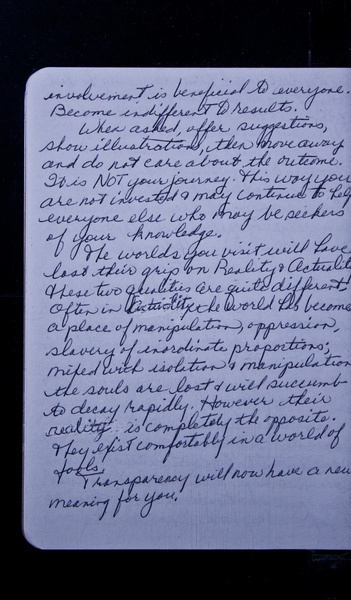 involvement is beneficial to everyone.
Become indifferent to results.
When asked, offer suggestions,
show illustration, then move away
and do not care about the outcome.
It is NOT your journey. This way you
are not invested & may continue to help
everyone else who may be seekers
of your knowledge.
The worlds you visit will have
lost their grip on Reality & Actuality
these two qualities are quite different.
Often in Actuality the world has become
a place of manipulation, oppression,
slavery of inordinate proportions;
mixed with isolation & manipulation
the souls are lost & will succumb
to decay rapidly. However their
reality is completely the opposite.
They exist comfortably in a world of
fools.
Transparency will now have a new
meaning for you.